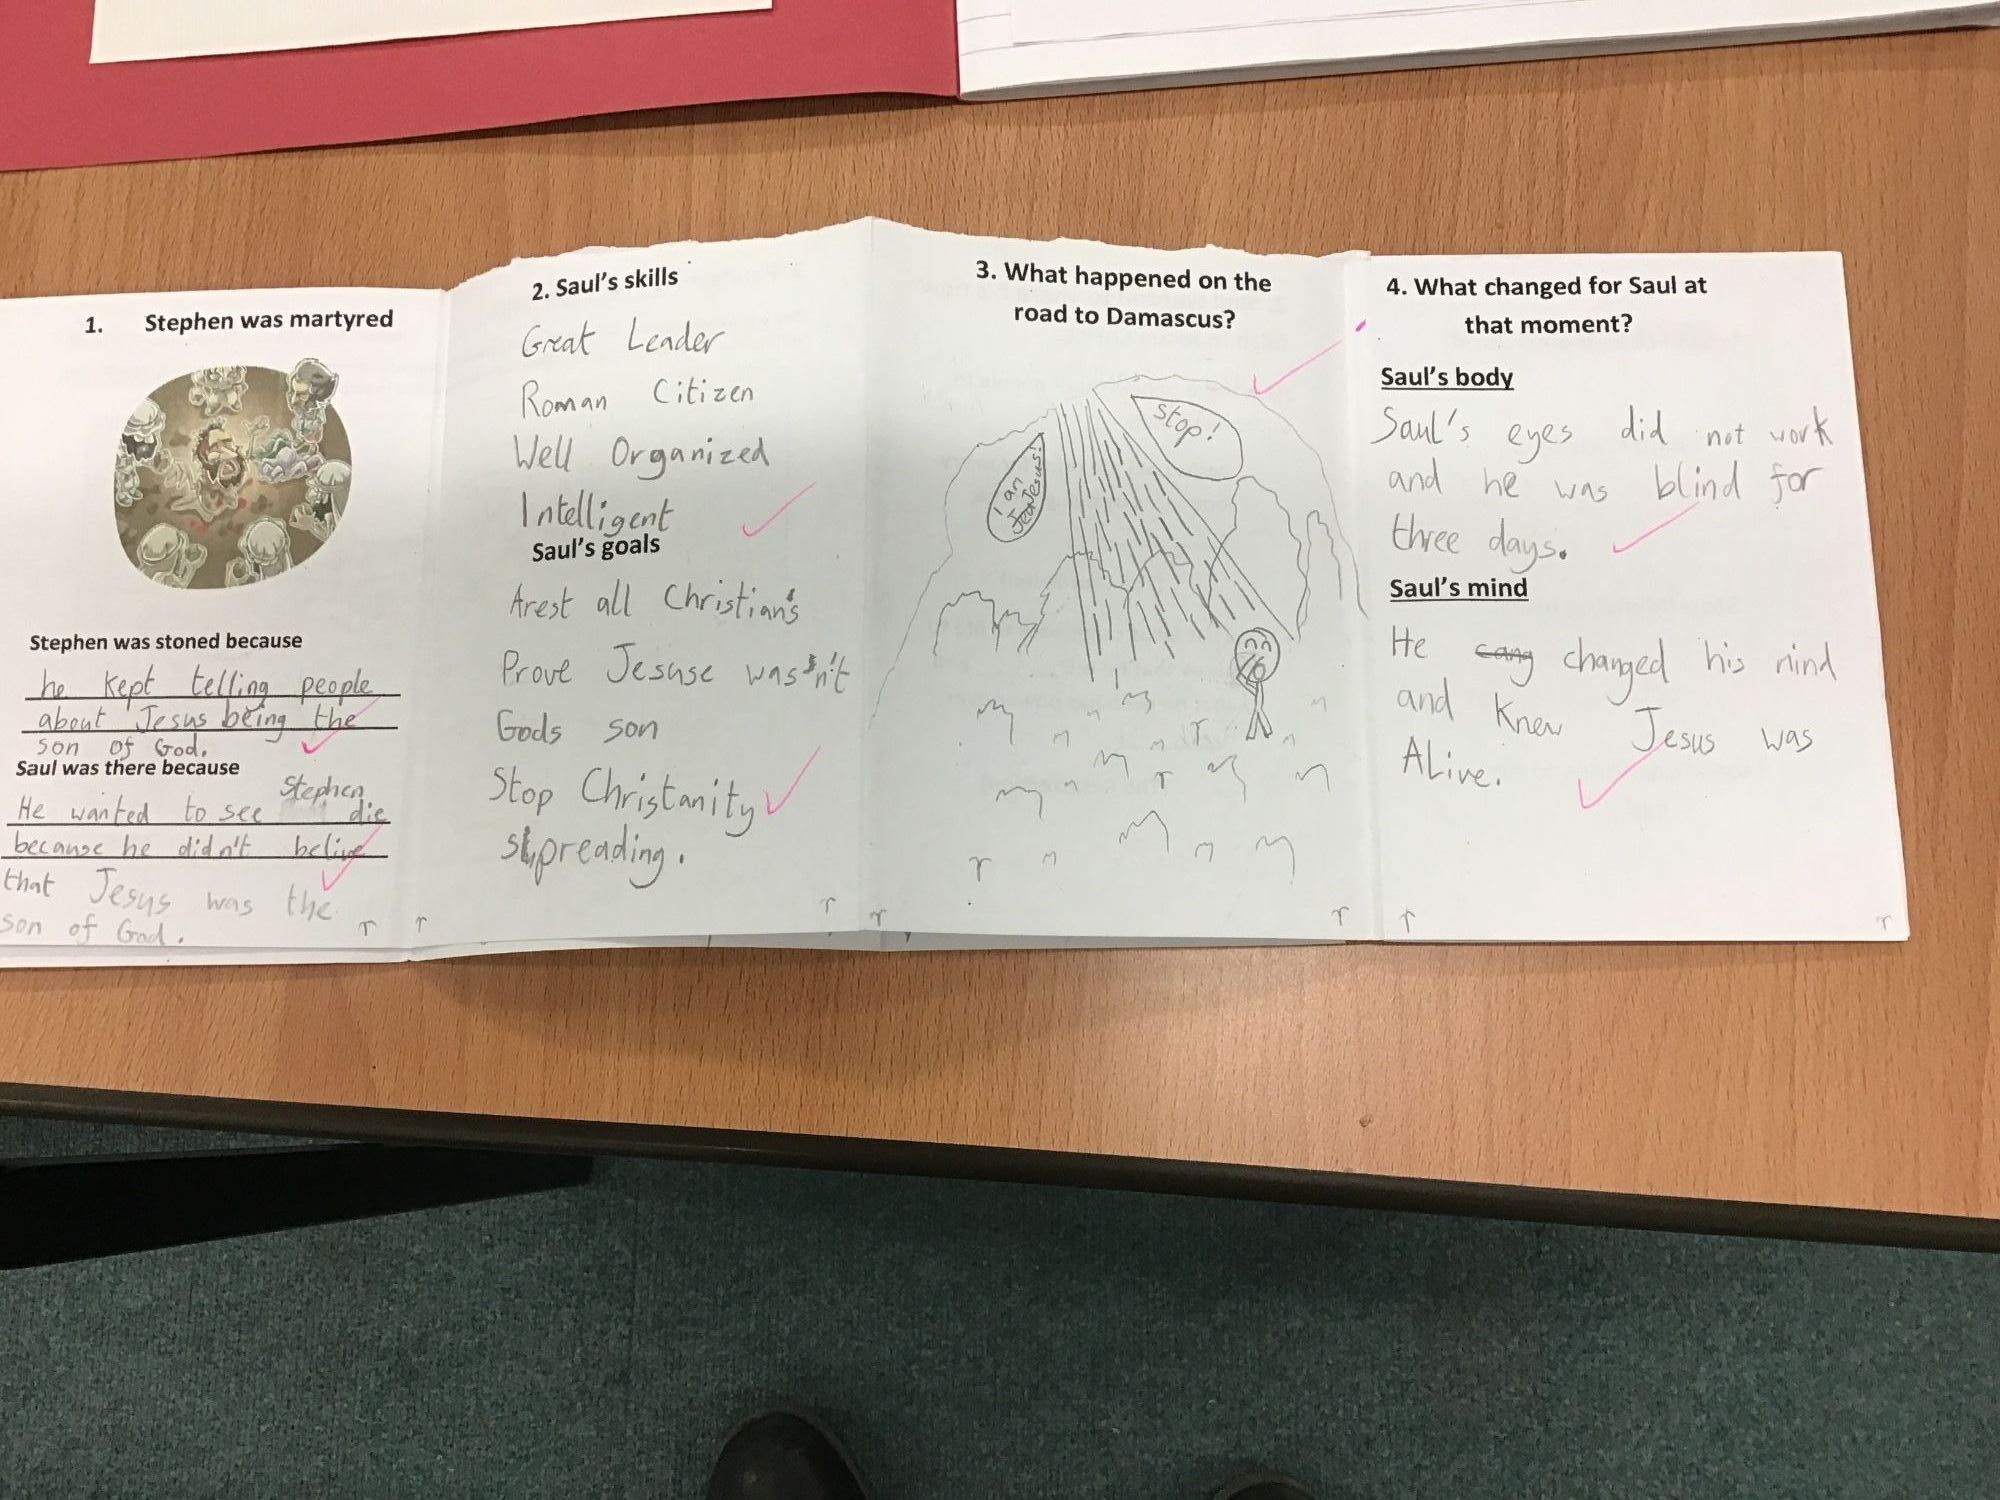 1. Stephen was martyred
Stephen was stoned because
he kept telling people
about Jesus being the
son of God.
Saul was there because
Stephen
He wanted to see die
because he didn't belive
that Jesus was the
son of God.
2. Saul's skills
Great Leader
Roman Citizen
Well Organized
Intelligent
Saul's goals
Arest all Christian's
Prove Jesuse wasn't
Gods son
Stop Christanity
spreading.
3. What happened on the
road to Damascus?
stop!
I am
Jesus!
4. What changed for Saul at
that moment?
Saul's body
Saul's eyes did not work
and he was blind for
three days.
Saul's mind
He cang changed his mind
and knew Jesus was
ALive.